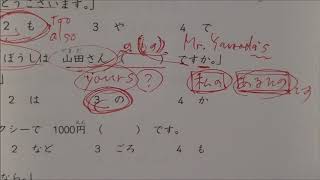 どうございます。」
2 も too also 3 や 4 て
a(の) Mr. Yamada's
ぼうしは 山田さん ( ) ですか。」
やまだ
yours ? 私の あなたの です
2 は 3 の 4 か
クシーで 1000円 ( ) です。
えん
2 など 3 ごろ 4 も